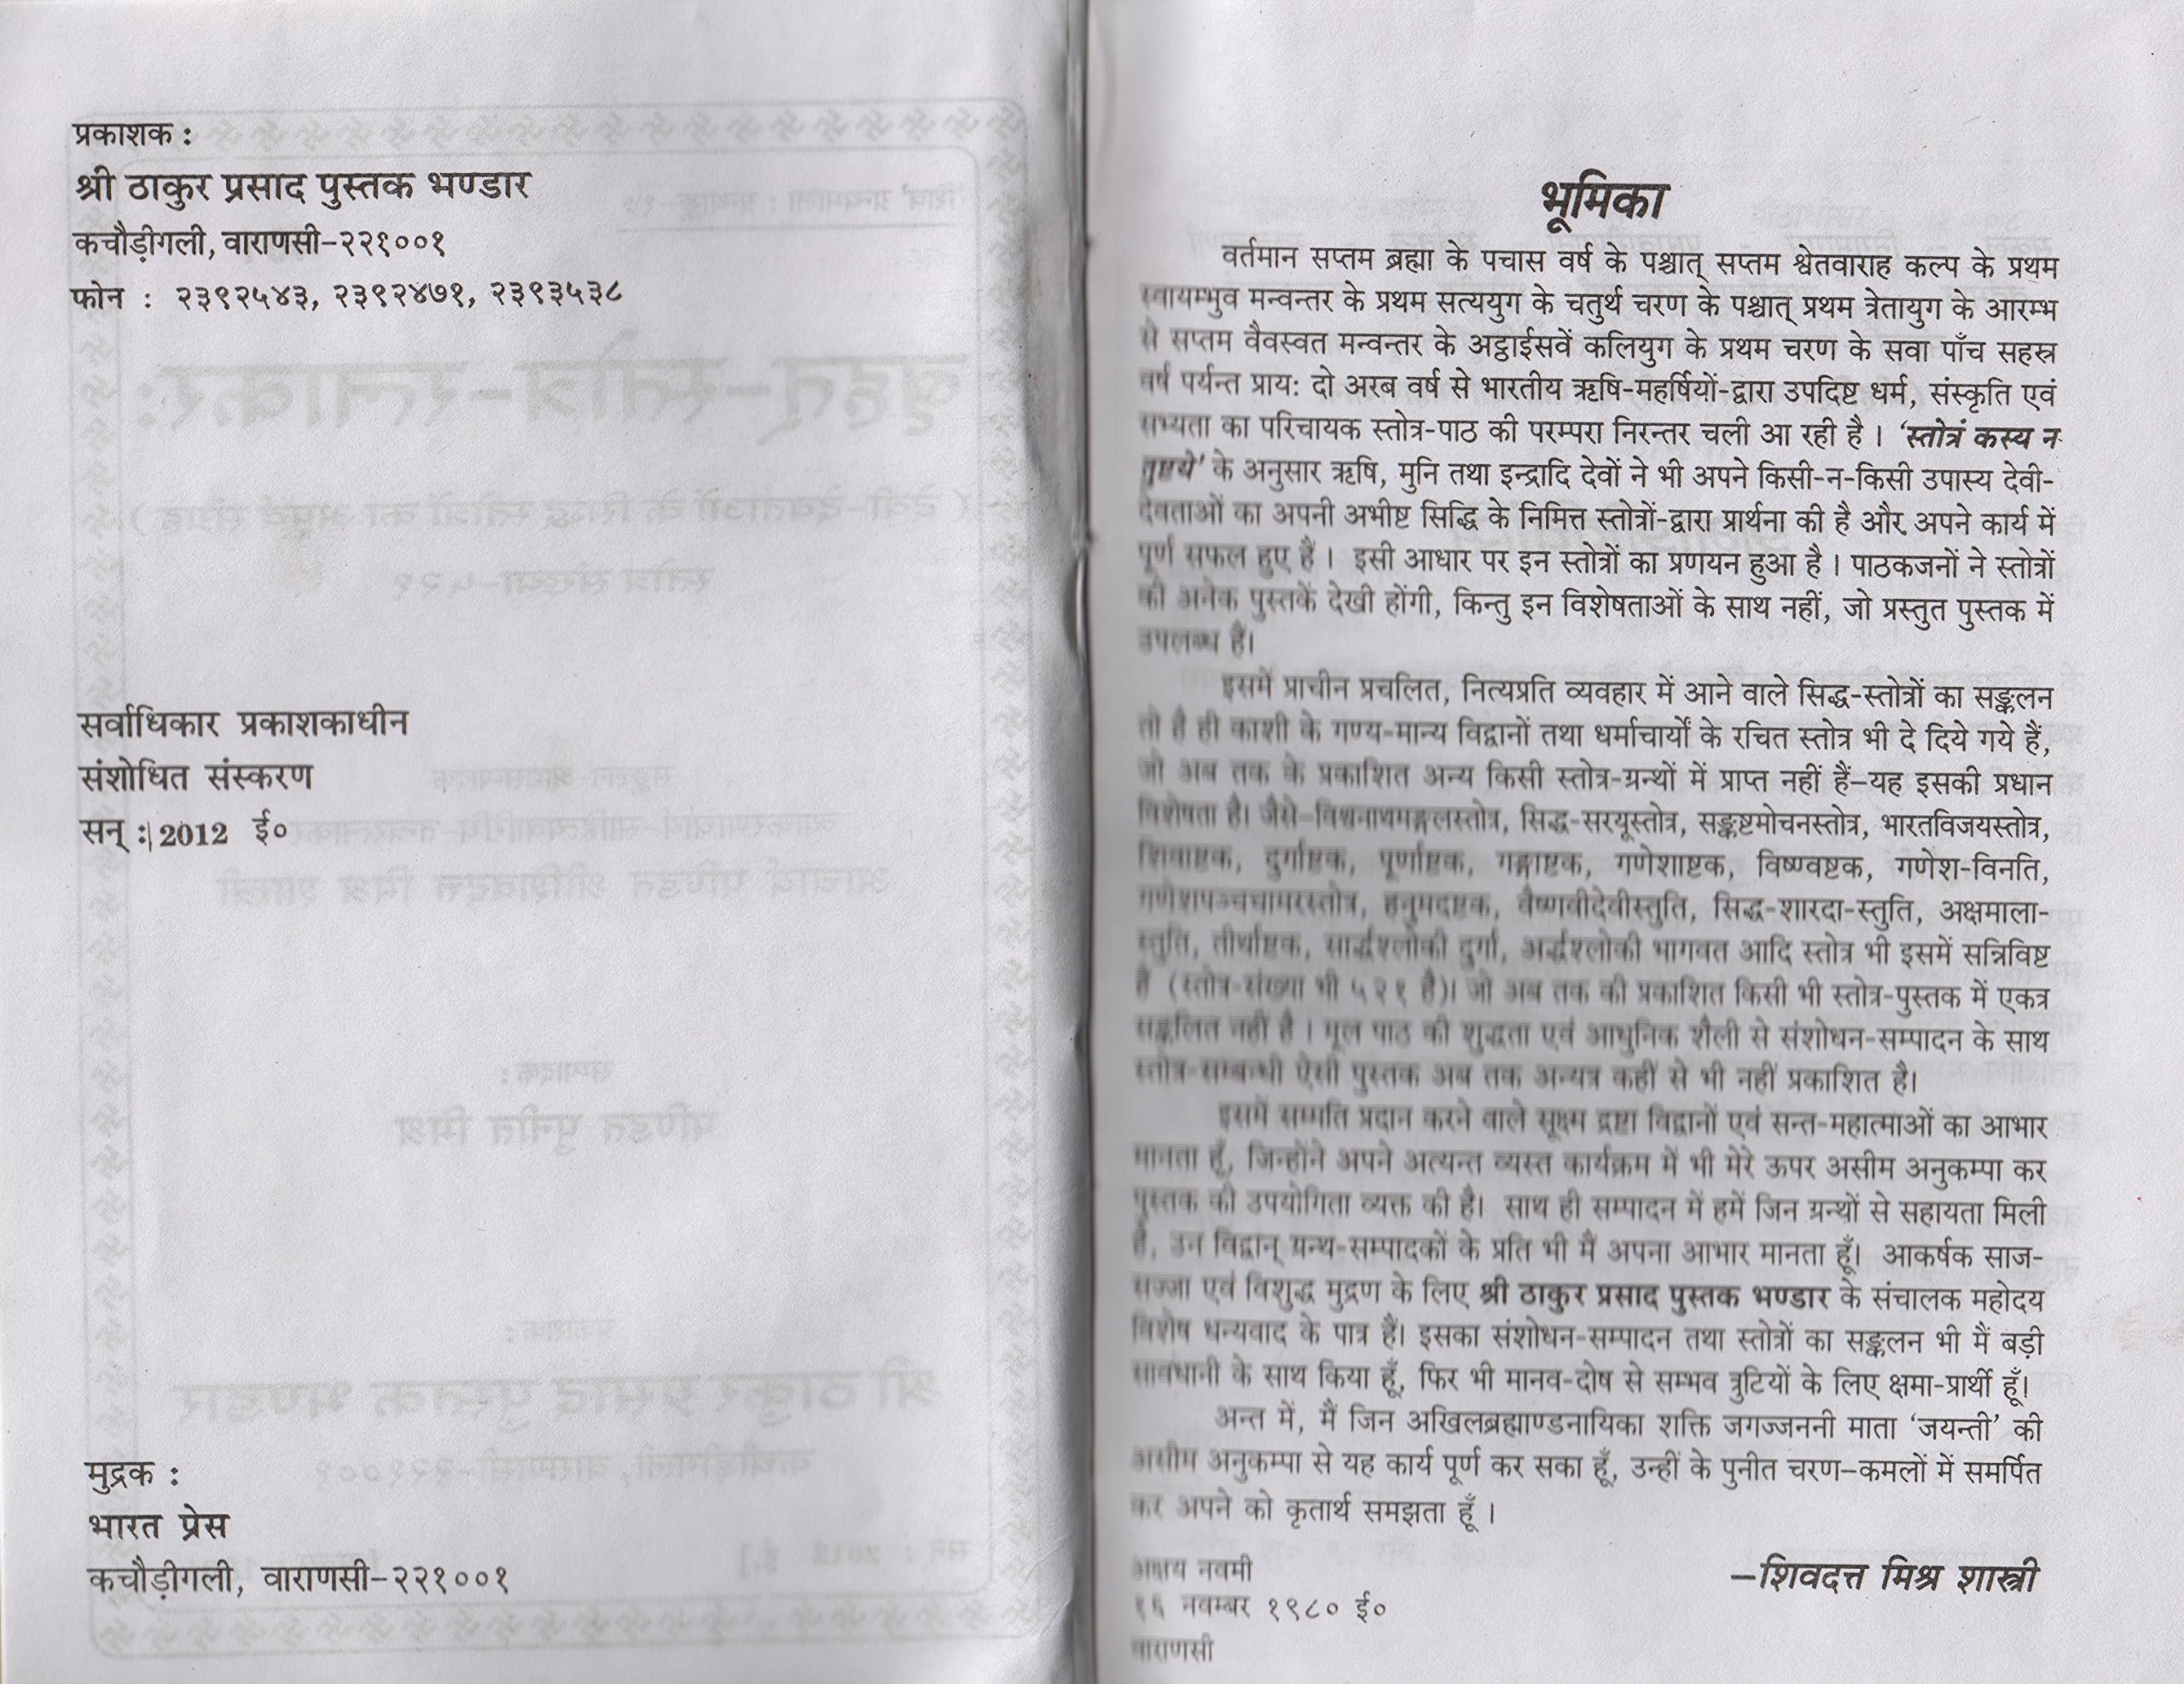 प्रकाशक :
श्री ठाकुर प्रसाद पुस्तक भण्डार
कचौड़ीगली, वाराणसी–२२१००१
फोन : २३९२५४३, २३९२४७१, २३९३५३८
सर्वाधिकार प्रकाशकाधीन
संशोधित संस्करण
सन् : 2012 ई०
मुद्रक :
भारत प्रेस
कचौड़ीगली, वाराणसी–२२१००१
भूमिका
वर्तमान सप्तम ब्रह्मा के पचास वर्ष के पश्चात् सप्तम श्वेतवाराह कल्प के प्रथम
स्वायम्भुव मन्वन्तर के प्रथम सत्ययुग के चतुर्थ चरण के पश्चात् प्रथम त्रेतायुग के आरम्भ
से सप्तम वैवस्वत मन्वन्तर के अट्ठाईसवें कलियुग के प्रथम चरण के सवा पाँच सहस्र
वर्ष पर्यन्त प्रायः दो अरब वर्ष से भारतीय ऋषि-महर्षियों-द्वारा उपदिष्ट धर्म, संस्कृति एवं
सभ्यता का परिचायक स्तोत्र-पाठ की परम्परा निरन्तर चली आ रही है । ‘स्तोत्रं कस्य न
तुष्टये’ के अनुसार ऋषि, मुनि तथा इन्द्रादि देवों ने भी अपने किसी-न-किसी उपास्य देवी-
देवताओं का अपनी अभीष्ट सिद्धि के निमित्त स्तोत्रों-द्वारा प्रार्थना की है और अपने कार्य में
पूर्ण सफल हुए हैं । इसी आधार पर इन स्तोत्रों का प्रणयन हुआ है । पाठकजनों ने स्तोत्रों
की अनेक पुस्तकें देखी होंगी, किन्तु इन विशेषताओं के साथ नहीं, जो प्रस्तुत पुस्तक में
उपलब्ध हैं।
इसमें प्राचीन प्रचलित, नित्यप्रति व्यवहार में आने वाले सिद्ध-स्तोत्रों का सङ्कलन
तो है ही काशी के गण्य-मान्य विद्वानों तथा धर्माचार्यों के रचित स्तोत्र भी दे दिये गये हैं,
जो अब तक के प्रकाशित अन्य किसी स्तोत्र-ग्रन्थों में प्राप्त नहीं हैं–यह इसकी प्रधान
विशेषता है। जैसे–विश्वनाथमङ्गलस्तोत्र, सिद्ध-सरयूस्तोत्र, सङ्कष्टमोचनस्तोत्र, भारतविजयस्तोत्र,
शिवाष्टक, दुर्गाष्टक, पूर्णाष्टक, गङ्गाष्टक, गणेशाष्टक, विष्ण्वष्टक, गणेश-विनति,
गणेशपञ्चचामरस्तोत्र, हनुमदष्टक, वैष्णवीदेवीस्तुति, सिद्ध-शारदा-स्तुति, अक्षमाला-
स्तुति, तीर्थाष्टक, सार्द्धश्लोकी दुर्गा, अर्द्धश्लोकी भागवत आदि स्तोत्र भी इसमें सन्निविष्ट
है (स्तोत्र-संख्या भी ५२१ है)। जो अब तक की प्रकाशित किसी भी स्तोत्र-पुस्तक में एकत्र
सङ्कलित नहीं है । मूल पाठ की शुद्धता एवं आधुनिक शैली से संशोधन-सम्पादन के साथ
स्तोत्र-सम्बन्धी ऐसी पुस्तक अब तक अन्यत्र कहीं से भी नहीं प्रकाशित है।
इसमें सम्मति प्रदान करने वाले सूक्ष्म द्रष्टा विद्वानों एवं सन्त-महात्माओं का आभार
मानता हूँ, जिन्होंने अपने अत्यन्त व्यस्त कार्यक्रम में भी मेरे ऊपर असीम अनुकम्पा कर
पुस्तक की उपयोगिता व्यक्त की है। साथ ही सम्पादन में हमें जिन ग्रन्थों से सहायता मिली
है, उन विद्वान् ग्रन्थ-सम्पादकों के प्रति भी मैं अपना आभार मानता हूँ। आकर्षक साज-
सज्जा एवं विशुद्ध मुद्रण के लिए श्री ठाकुर प्रसाद पुस्तक भण्डार के संचालक महोदय
विशेष धन्यवाद के पात्र हैं। इसका संशोधन-सम्पादन तथा स्तोत्रों का सङ्कलन भी मैं बड़ी
सावधानी के साथ किया हूँ, फिर भी मानव-दोष से सम्भव त्रुटियों के लिए क्षमा-प्रार्थी हूँ।
अन्त में, मैं जिन अखिलब्रह्माण्डनायिका शक्ति जगज्जननी माता ‘जयन्ती’ की
असीम अनुकम्पा से यह कार्य पूर्ण कर सका हूँ, उन्हीं के पुनीत चरण–कमलों में समर्पित
कर अपने को कृतार्थ समझता हूँ ।
अक्षय नवमी
१६ नवम्बर १९८० ई०
वाराणसी
–शिवदत्त मिश्र शास्त्री